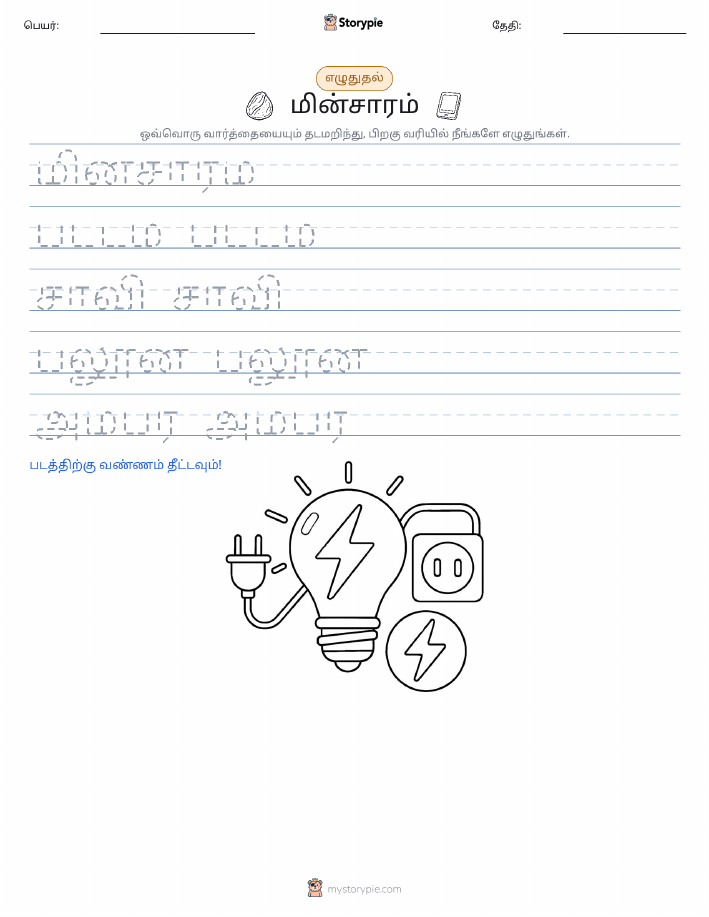 பெயர்:
Storypie
தேதி:
எழுதுதல்
மின்சாரம்
ஒவ்வொரு வார்த்தையையும் தடமறிந்து, பிறகு வரியில் நீங்களே எழுதுங்கள்.
மினசாரம
படடம படடம
சாவி சாவி
பலூன பலூன
அமபர அமபர
படத்திற்கு வண்ணம் தீட்டவும்!
mystorypie.com